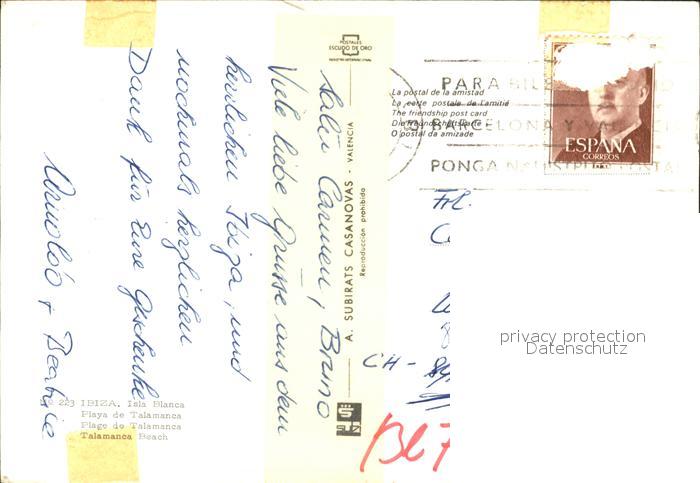 Salü Carmen, Bruno
Viele liebe Grüsse aus dem
herrlichen Ibiza, und
nochmals herzlichen
Dank für Eure Geschenke
Arnoldo + Beatrice
Nº 223 IBIZA. Isla Blanca
Playa de Talamanca
Plage de Talamanca
Talamanca Beach
POSTALES
ESCUDO DE ORO
A. SUBIRATS CASANOVAS - VALENCIA
Reproducción prohibida
La postal de la amistad
La carte postale de l'amitié
The friendship post card
Die Freundschaftskarte
O postal da amizade
PARA
BARCELONA Y
PONGA
ESPAÑA
CORREOS
Frl.
CH -
privacy protection
Datenschutz